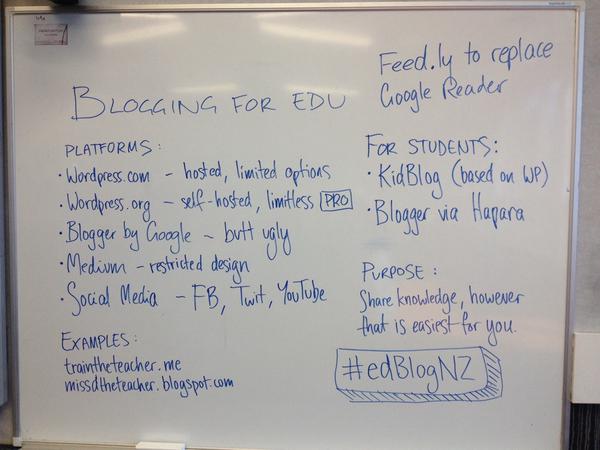 BLOGGING FOR EDU
PLATFORMS:
• Wordpress.com - hosted, limited options
• Wordpress.org - self-hosted, limitless PRO
• Blogger by Google - butt ugly
• Medium - restricted design
• Social Media - FB, Twit, YouTube
EXAMPLES:
traintheteacher.me
missdtheteacher.blogspot.com
Feed.ly to replace
Google Reader
FOR STUDENTS:
• KidBlog (based on WP)
• Blogger via Hapara
PURPOSE:
Share knowledge, however
that is easiest for you.
#edBlogNZ